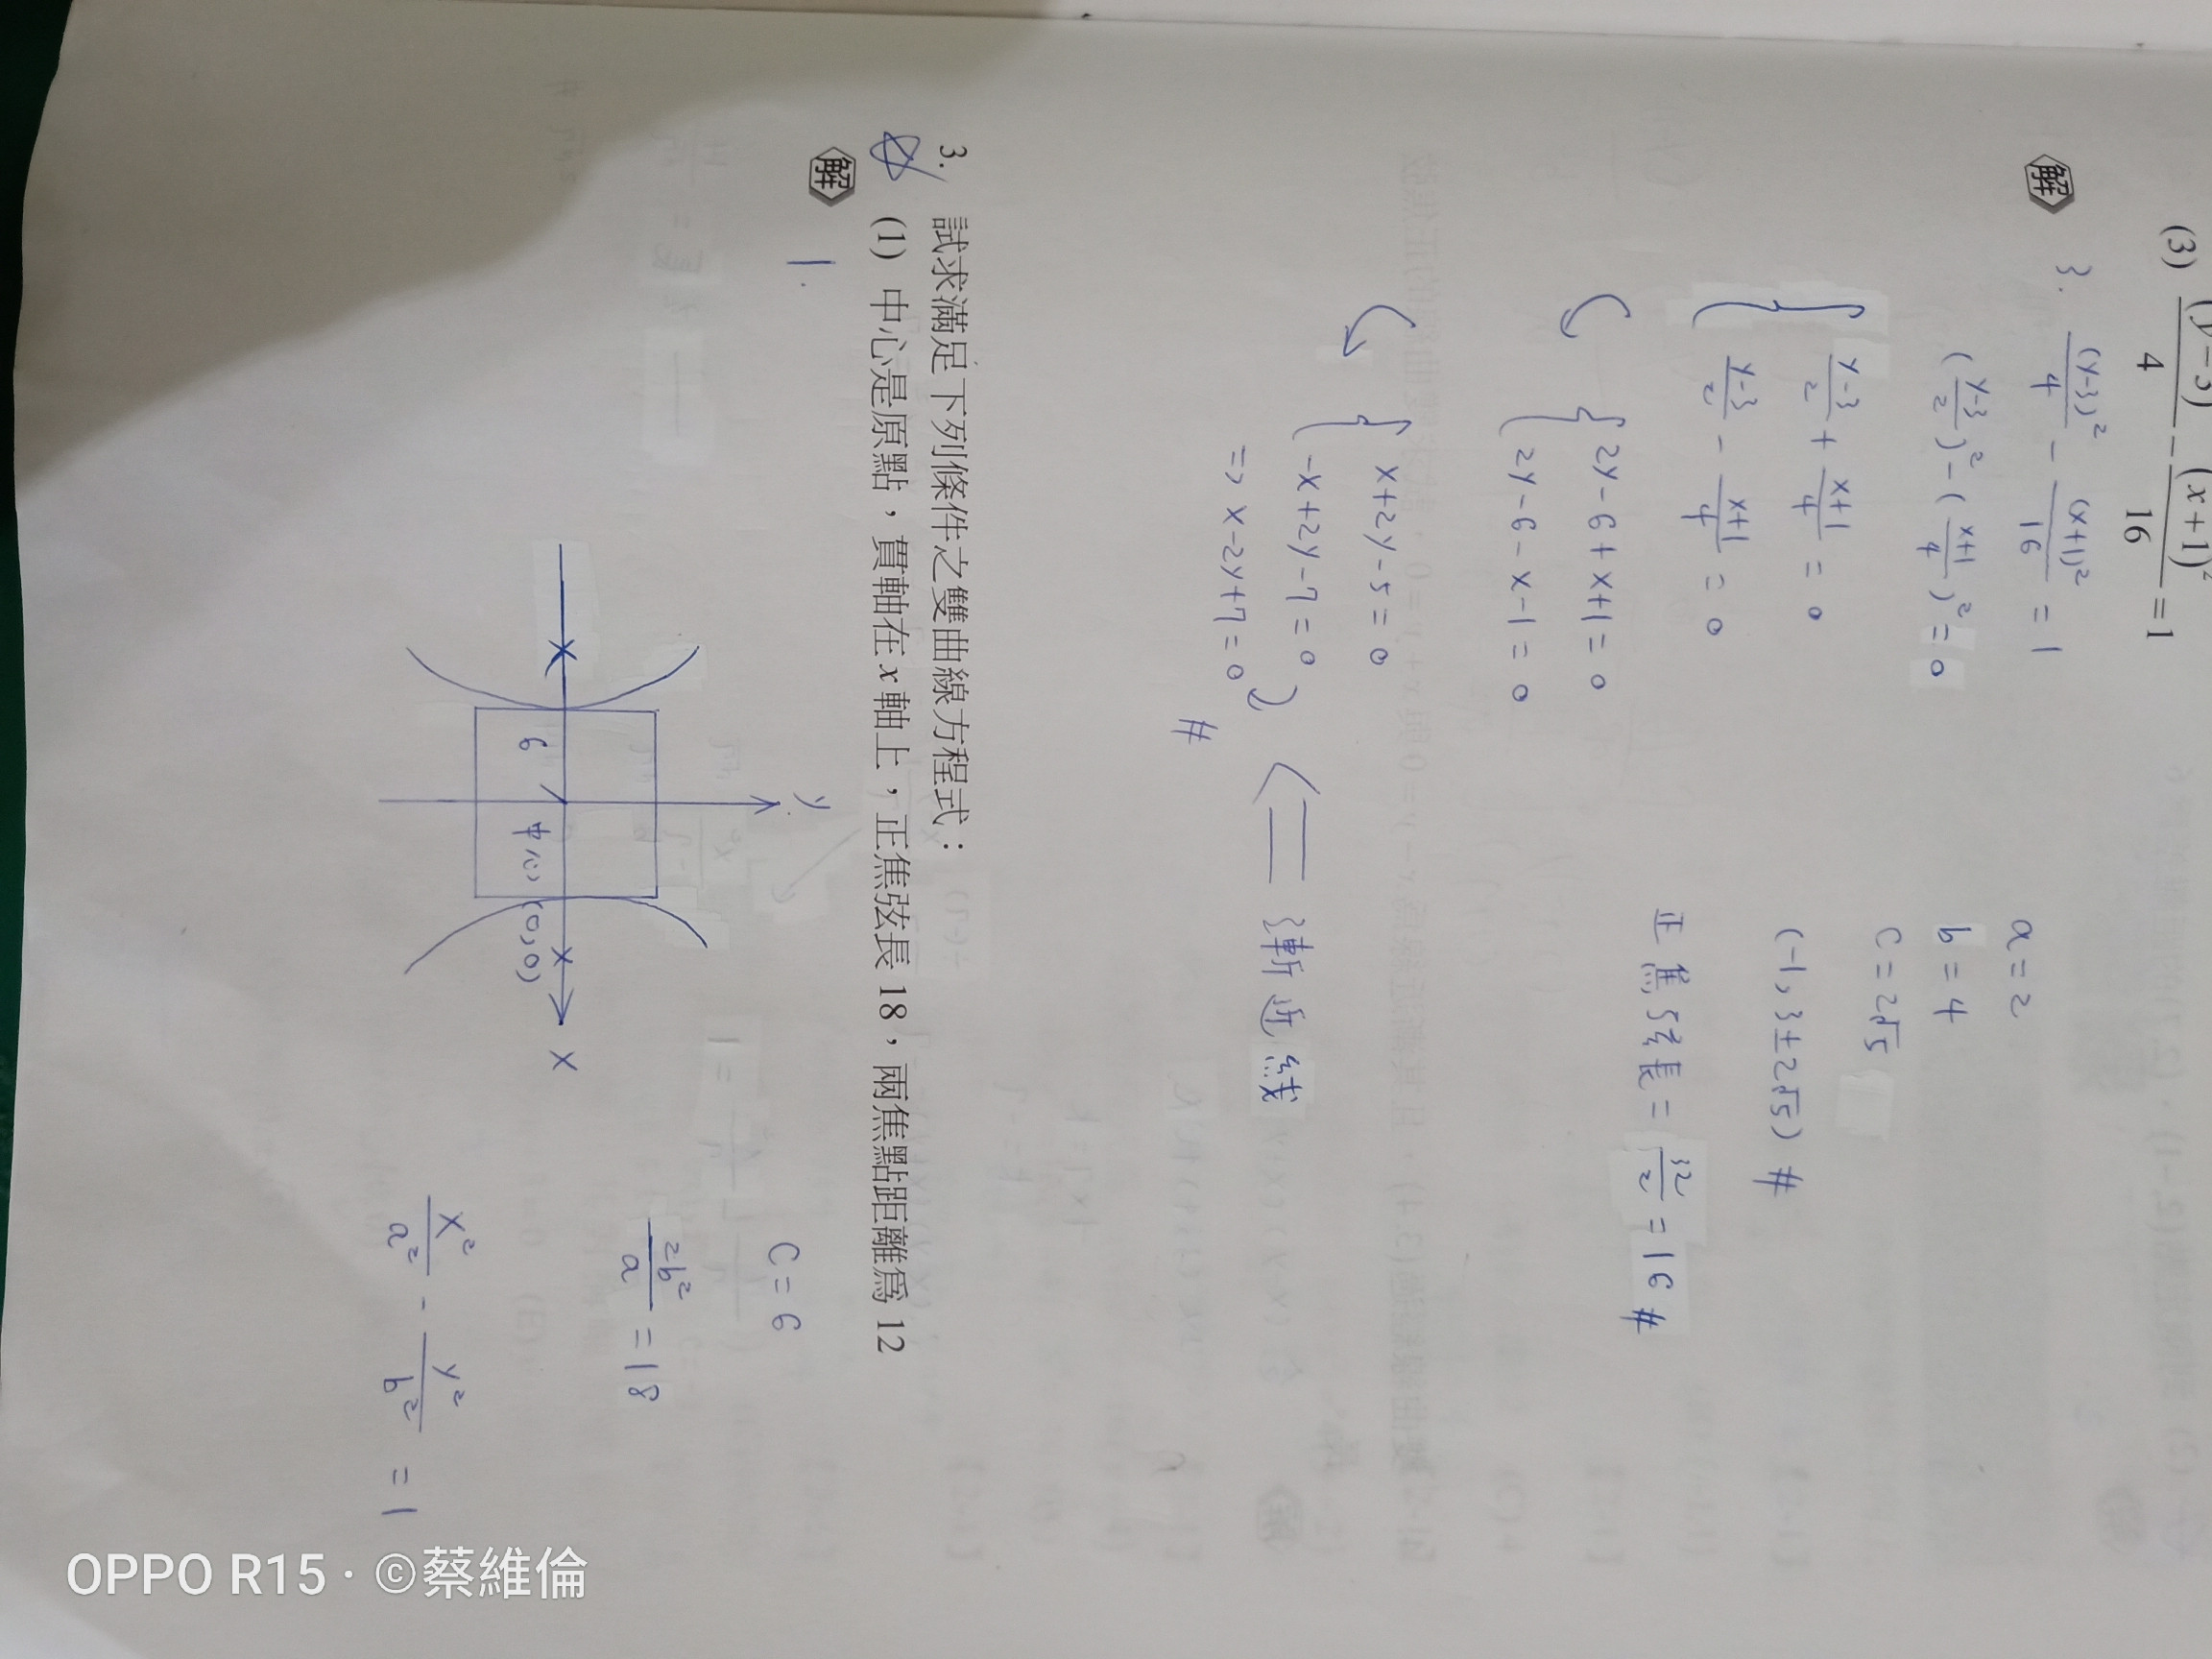 (3) (y-3)/4 - (x+1)²/16 = 1
解
3. (y-3)²/4 - (x+1)²/16 = 1
(y-3/2)² - (x+1/4)² = 0
y-3/2 + x+1/4 = 0
y-3/2 - x+1/4 = 0
2y-6+x+1=0
2y-6-x-1=0
x+2y-5=0
-x+2y-7=0
=> x-2y+7=0
#
a=2
b=4
c=2√5
(-1, 3±2√5) #
正焦弦長 = 32/2 = 16 #
漸近線
3. 試求滿足下列條件之雙曲線方程式：
(1) 中心是原點，貫軸在 x 軸上，正焦弦長 18，兩焦點距離為 12
解
1.
y
6
中心 (0,0)
x
C=6
2b²/a = 18
x²/a² - y²/b² = 1
OPPO R15 · ©蔡維倫